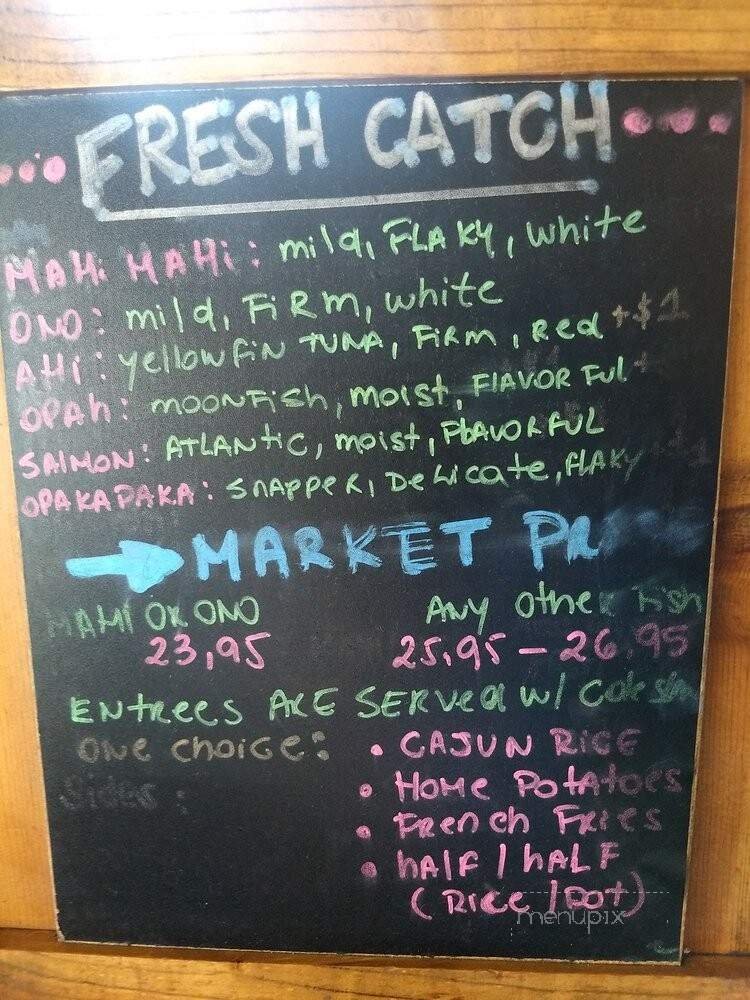 FRESH CATCH
MAHI MAHI: mild, FLAKY, white
ONO: mild, FIRM, white
AHI: yellowfin TUNA, FIRM, Red +$1
OPAH: moonfish, moist, FLAVORFUL
SALMON: ATLANTIC, moist, FLAVORFUL
OPAKAPAKA: SNAPPER, Delicate, FLAKY
MARKET
MAHI OR ONO Any Other Fish
23,95 25,95 – 26,95
ENTREES ARE SERVED W/
ONE CHOICE: • CAJUN RICE
Sides: • HOME POTATOES
• FRENCH FRIES
• HALF / HALF
(RICE / POT)
menupix